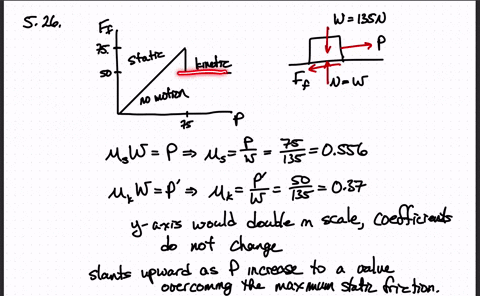 5.26.
F_f
75
50
static
kinetic
no motion
75
P
W = 135N
P
F_f
N=W
μ_sW = P ⇒ μ_s = P/W = 75/135 = 0.556
μ_kW = P' ⇒ μ_k = P'/W = 50/135 = 0.37
y-axis would double in scale, coefficients
do not change
slants upward as P increase to a value
overcoming the maximum static friction.